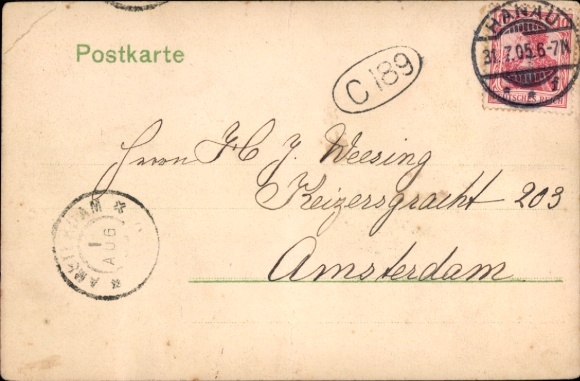 Postkarte
C 189
HANAU
31.7.05.6-7N
* * 1
DEUTSCHES REICH
Herrn H J. Weesing
Keizersgracht 203
Amsterdam
AMSTERDAM
1
AUG